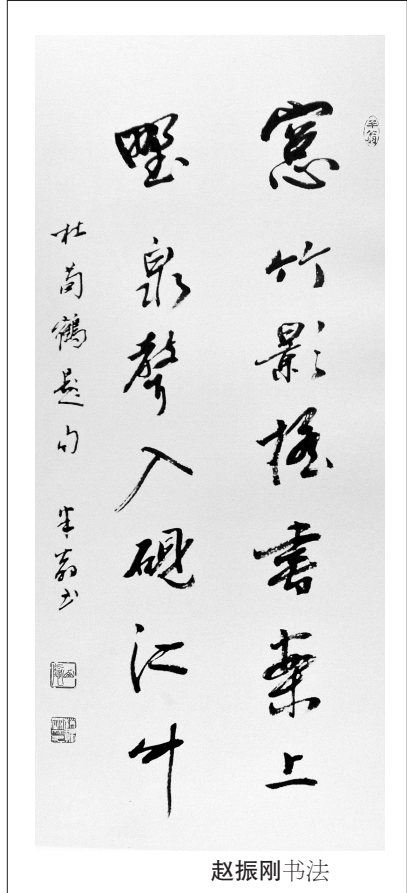 窓竹影摇書案上
野泉聲入硯池中
杜荀鶴題句 半翁书
赵振刚书法